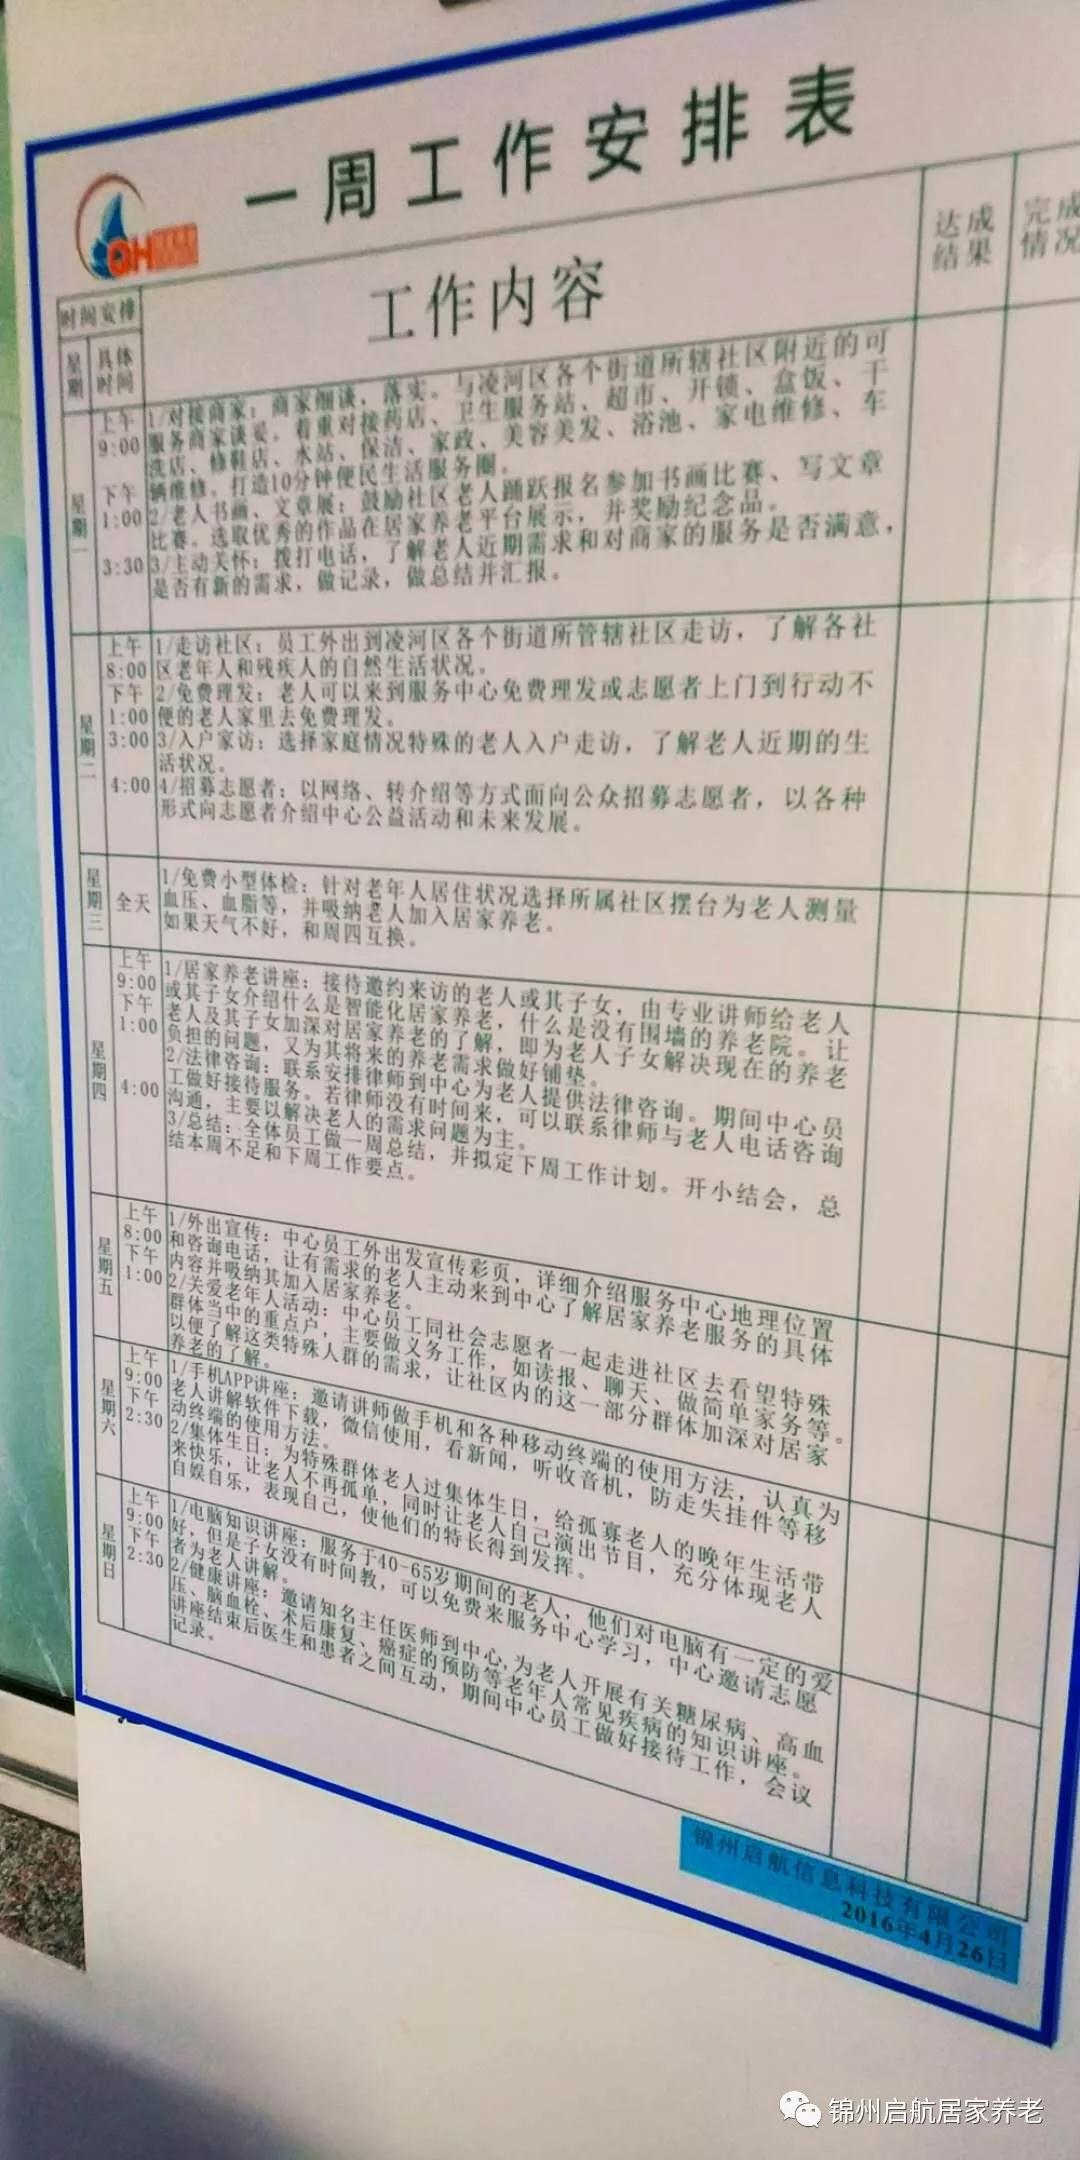 一周工作安排表
QH
时间安排
工作内容
达成结果
完成情况
星期
具体时间
星期一
上午
9:00
下午
1:00
3:30
1/对接商家：商家细谈，落实。与凌河区各个街道所辖社区附近的可
服务商家谈妥。着重对接药店、卫生服务站、超市、开锁、盒饭、干
洗店、修鞋店、水站、保洁、家政、美容美发、浴池、家电维修、车
辆维修。打造10分钟便民生活服务圈。
2/老人书画、文章展：鼓励社区老人踊跃报名参加书画比赛、写文章
比赛。选取优秀的作品在居家养老平台展示，并奖励纪念品。
3/主动关怀：拨打电话，了解老人近期需求和对商家的服务是否满意，
是否有新的需求，做记录，做总结并汇报。
星期二
上午
8:00
下午
1:00
3:00
4:00
1/走访社区：员工外出到凌河区各个街道所管辖社区走访，了解各社
区老年人和残疾人的自然生活状况。
2/免费理发：老人可以来到服务中心免费理发或志愿者上门到行动不
便的老人家里去免费理发。
3/入户家访：选择家庭情况特殊的老人入户走访，了解老人近期的生
活状况。
4/招募志愿者：以网络、转介绍等方式面向公众招募志愿者，以各种
形式向志愿者介绍中心公益活动和未来发展。
星期三
全天
1/免费小型体检：针对老年人居住状况选择所属社区摆台为老人测量
血压、血脂等，并吸纳老人加入居家养老。
如果天气不好，和周四互换。
星期四
上午
9:00
下午
1:00
4:00
1/居家养老讲座：接待邀约来访的老人或其子女，由专业讲师给老人
或其子女介绍什么是智能化居家养老，什么是没有围墙的养老院。让
老人及其子女加深对居家养老的了解，即为老人子女解决现在的养老
负担的问题，又为其将来的养老需求做好铺垫。
2/法律咨询：联系安排律师到中心为老人提供法律咨询。期间中心员
工做好接待服务。若律师没有时间来，可以联系律师与老人电话咨询
沟通，主要以解决老人的需求问题为主。
3/总结：全体员工做一周总结，并拟定下周工作计划。开小结会，总
结本周不足和下周工作要点。
星期五
上午
8:00
下午
1:00
1/外出宣传：中心员工外出发宣传彩页，详细介绍服务中心地理位置
和咨询电话，让有需求的老人主动来到中心了解居家养老服务的具体
内容并吸纳其加入居家养老。
2/关爱老年人活动：中心员工同社会志愿者一起走进社区去看望特殊
群体当中的重点户，主要做义务工作，如读报、聊天、做简单家务等。
以便了解这类特殊人群的需求，让社区内的这一部分群体加深对居家
养老的了解。
星期六
上午
9:00
下午
2:30
1/手机APP讲座：邀请讲师做手机和各种移动终端的使用方法，认真为
老人讲解软件下载，微信使用，看新闻，听收音机，防走失挂件等移
动终端的使用方法。
2/集体生日：为特殊群体老人过集体生日，给孤寡老人的晚年生活带
来快乐，让老人不再孤单，同时让老人自己演出节目，充分体现老人
自娱自乐，表现自己，使他们的特长得到发挥。
星期日
上午
9:00
下午
2:30
1/电脑知识讲座：服务于40-65岁期间的老人，他们对电脑有一定的爱
好，但是子女没有时间教，可以免费来服务中心学习，中心邀请志愿
者为老人讲解。
2/健康讲座：邀请知名主任医师到中心，为老人开展有关糖尿病、高血
压、脑血栓、术后康复、癌症的预防等老年人常见疾病的知识讲座。
讲座结束后医生和患者之间互动，期间中心员工做好接待工作，会议
记录。
锦州启航信息科技有限公司
2016年4月26日
锦州启航居家养老